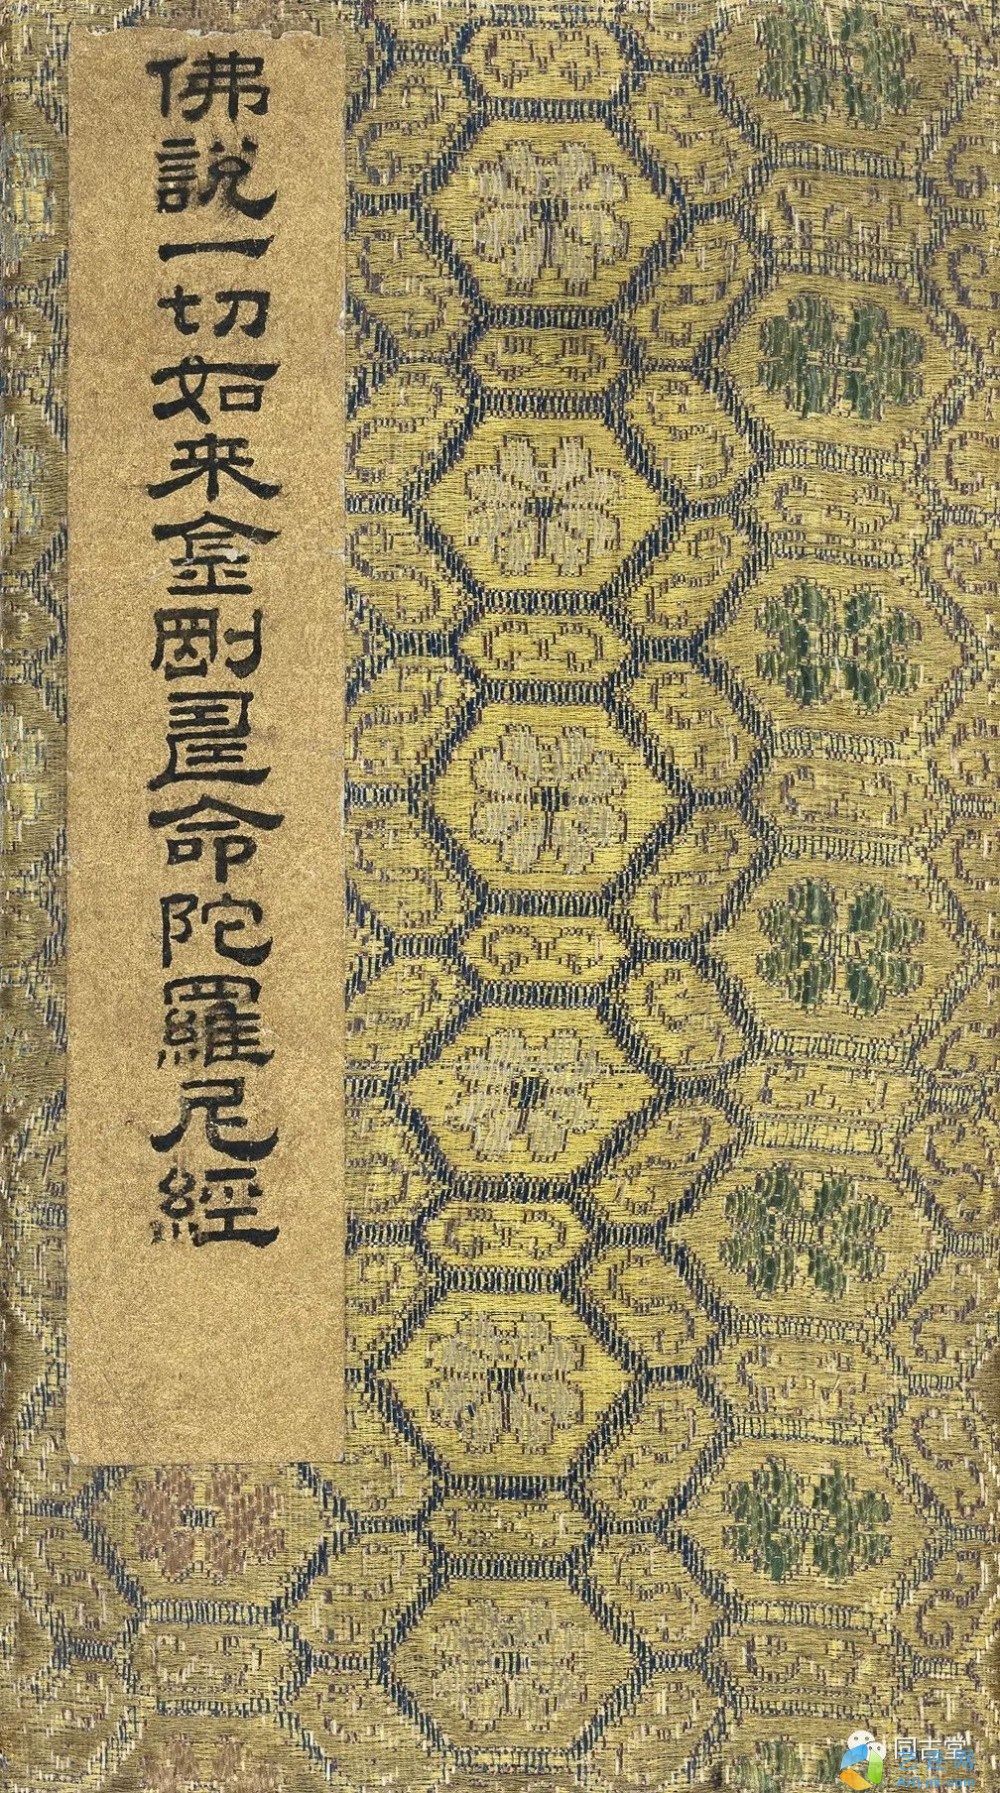 佛說一切如来金剛壽命陀羅尼經
同古堂